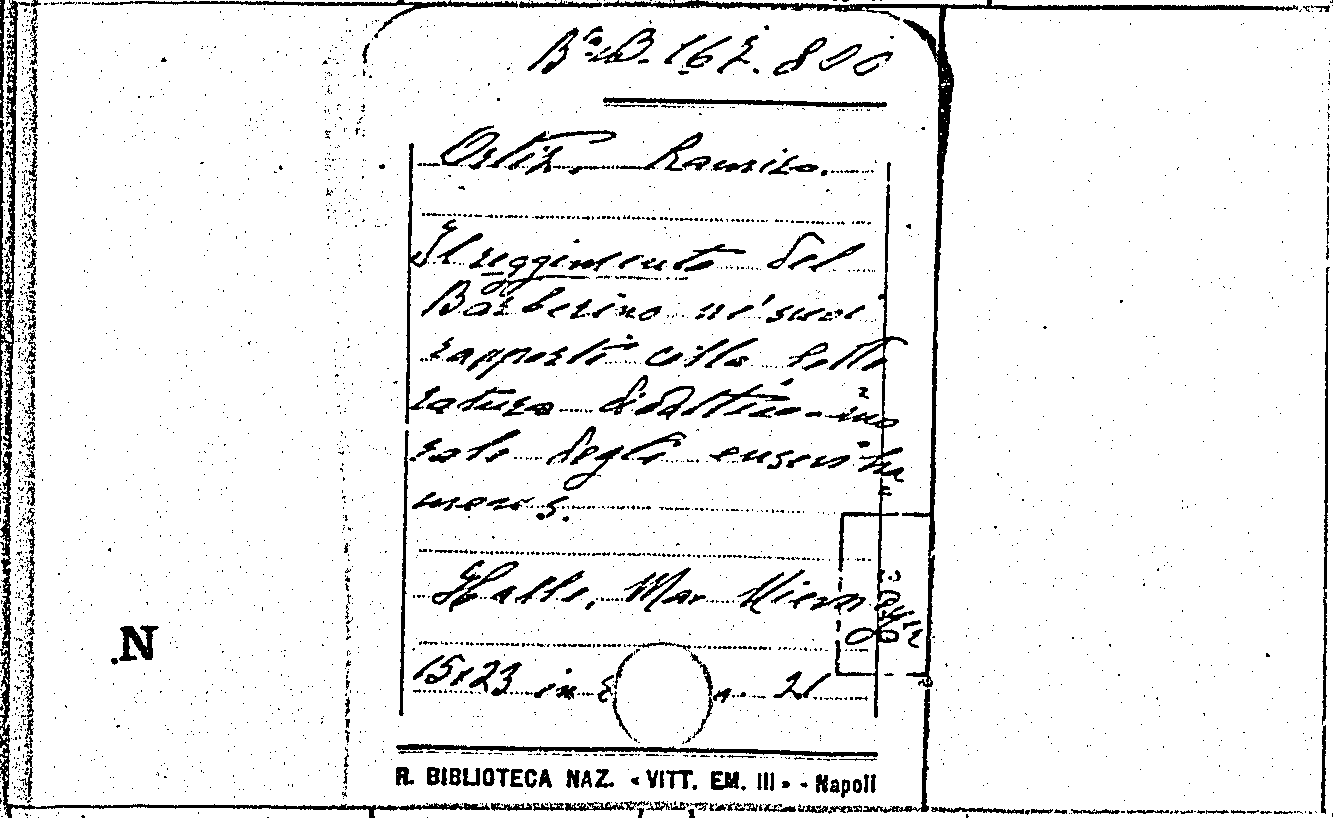 Ortiz. Ramiro.
Il reggimento del
Barberino ne' suoi
rapporti colla lette
ratura didattico-mo
rale degli ensenha
mens.
Halle, Max Niem
15x23 in 21
N
R. BIBLIOTECA NAZ. « VITT. EM. III » - Napoli